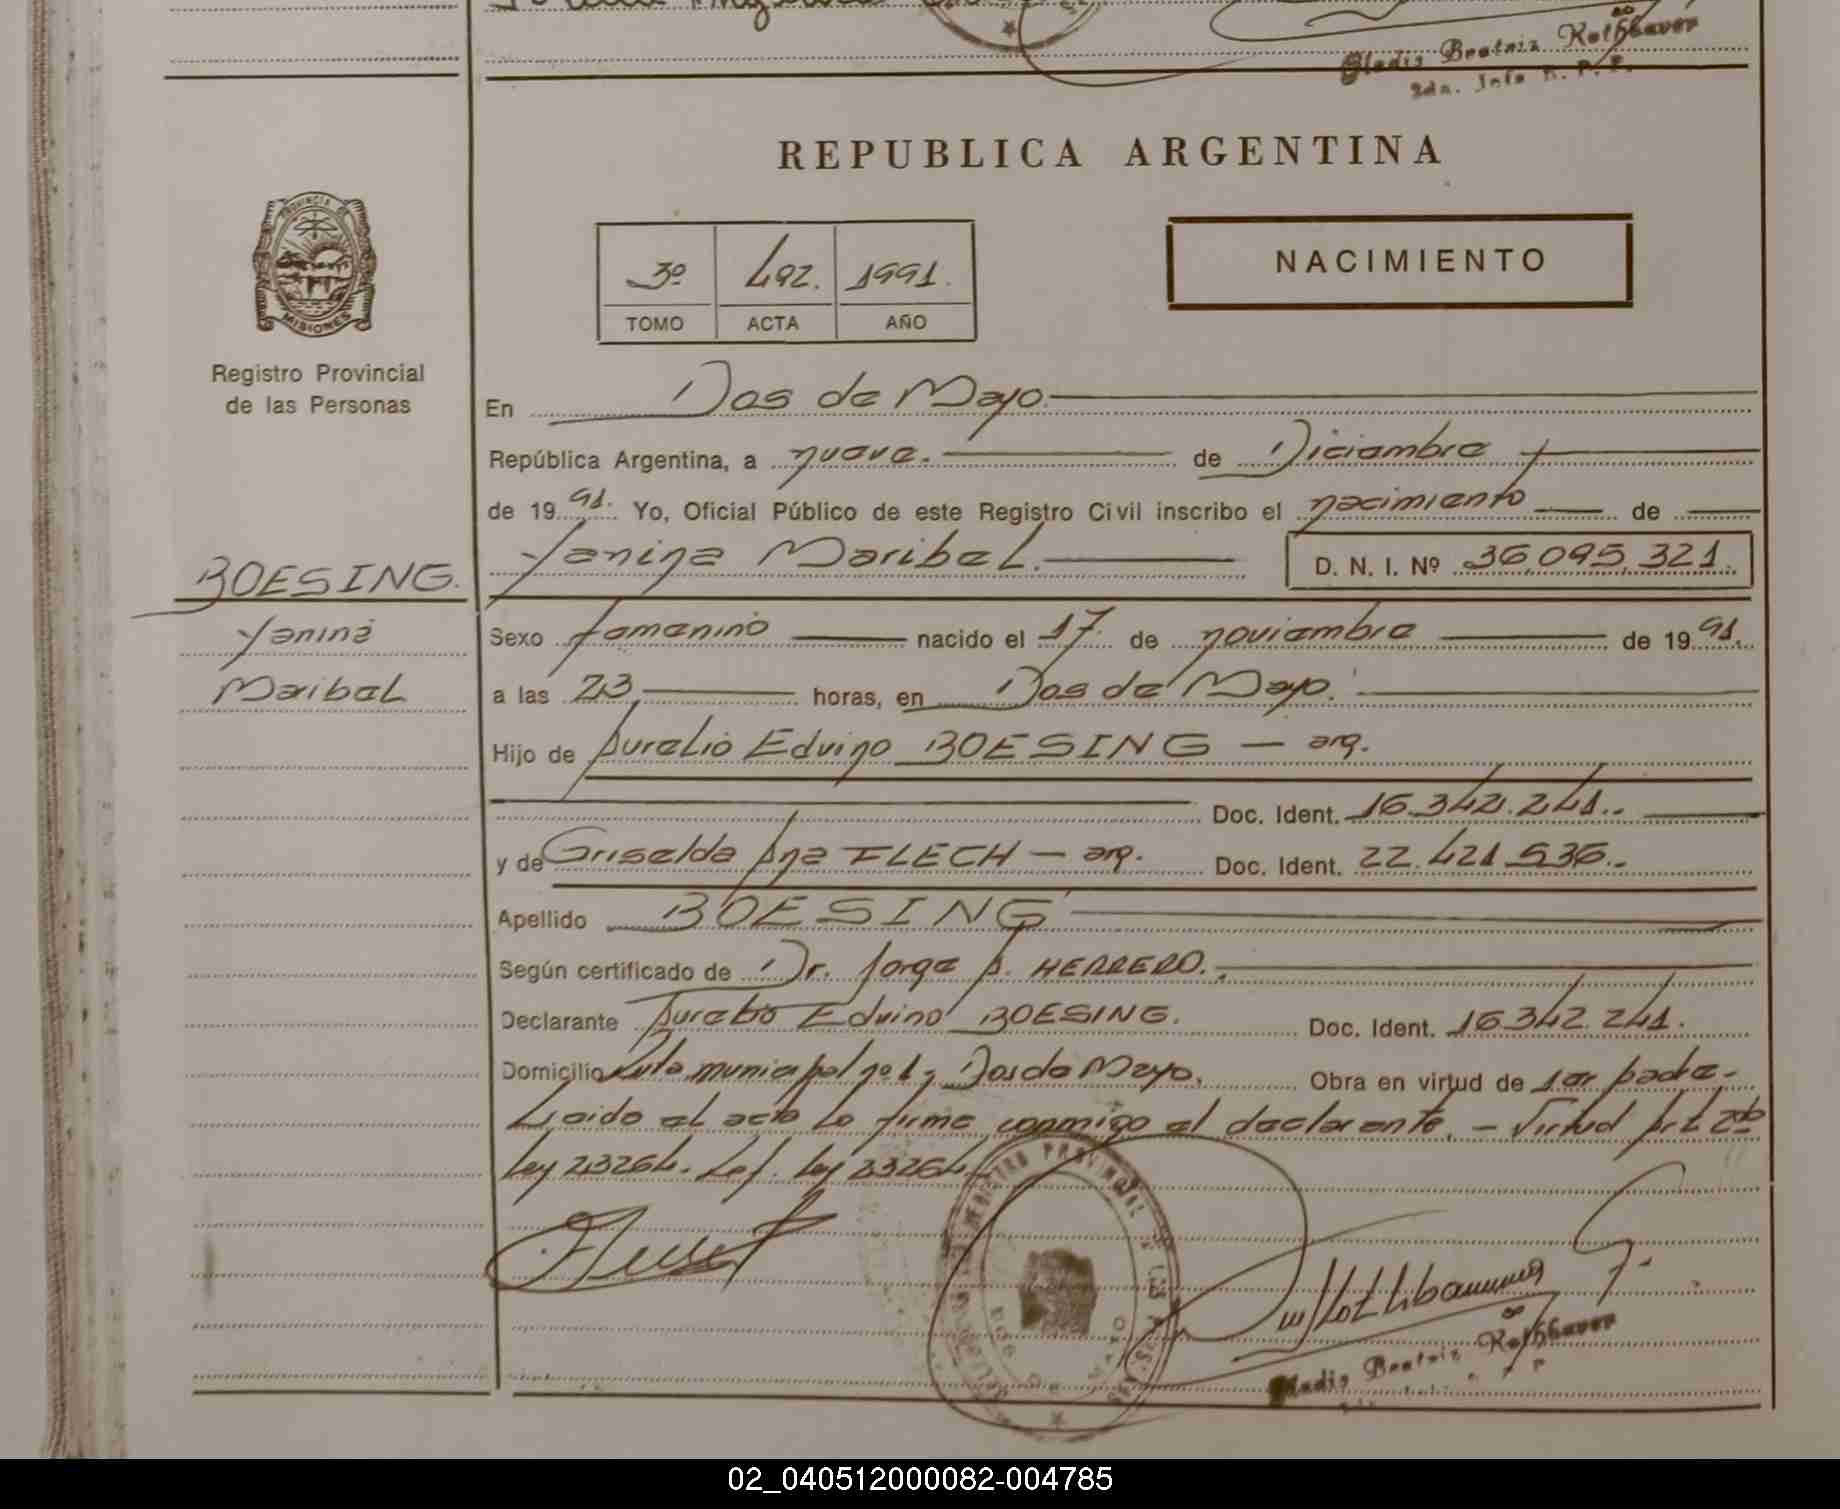 Gladis Beatriz Rothbauer
REPUBLICA ARGENTINA
PROVINCIA DE
MISIONES
3º 492. 1991.
TOMO ACTA AÑO
NACIMIENTO
Registro Provincial
de las Personas
En Dos de Mayo.
República Argentina, a nueve. de Diciembre
de 1991. Yo, Oficial Público de este Registro Civil inscribo el nacimiento de
Yanina Maribel. D. N. I. Nº 36.095.321.
BOESING.
Yanina
Maribel
Sexo femenino nacido el 17. de noviembre de 1991.
a las 23 horas, en Dos de Mayo.
Hijo de Aurelio Edvino BOESING — arg.
Doc. Ident. 16.342.241.
y de Griselda Ana FLECH — arg. Doc. Ident. 22.421.536.
Apellido BOESING
Según certificado de Dr. Jorge A. HERRERO.
Declarante Aurelio Edvino BOESING. Doc. Ident. 16.342.241.
Domicilio Ruta municipal nº 1, Dos de Mayo. Obra en virtud de ser padre-
Leido el acta la firma conmigo el declarante. - Virtud Art. 2do
Ley 23264. Ley 23264.
REGISTRO PROVINCIAL
DOS DE MAYO
Gladis Beatriz Rothbauer
02_040512000082-004785